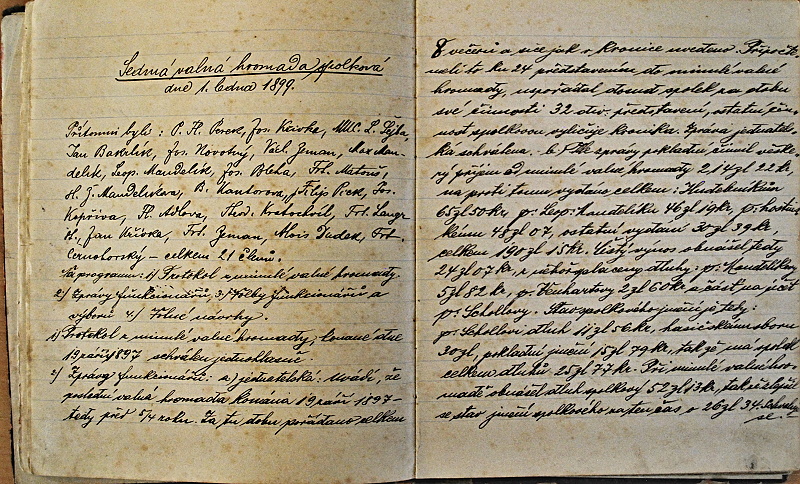 Sedmá valná hromada spolková
dne 1. ledna 1899.
Přítomni byli: P. Fl. Perek, Jos. Krivka, MUC. L. Lejta,
Jan Bakalík, Jos. Novotný, Václ. Zeman, Max Man-
delík, Leop. Mandelík, Jos. Bleha, Frt. Matouš,
H. J. Mandelíkova, B. Kantorova, Filip Pick, Jos.
Kopřiva, Fl. Adlova, Theod. Kratochvíl, Frt. Langr
st., Jan Křivka, Frt. Zeman, Alois Dudek, Frt.
Černohorsky – celkem 21 členů.
Na programu: 1) Protokol z minulé valné hromady.
2) Zprávy funkcionářů, 3) Volby funkcionářů a
výborů 4) Volné návrhy.
1) Protokol z minulé valné hromady, konané dne
19 září 1897 schválen jednohlasně.
2) Zprávy funkcionářů: a) jednatelská: Uvádí, že
poslední valná hromada konána 19 září 1897 –
tedy před 5/4 roku. Za tu dobu pořádáno celkem
8 večerů a sice jak v kronice uvedeno. Připočte
meli to ku 24 představením do minulé valné
hromady, uspořádal domut spolek za dobu
své činnosti 32 div. představení, ostatní čin-
nost spolkovou vyličuje kronika. Zpráva jednatel-
ská schválena. – b) Dle zprávy pokladní činil vešk-
ry příjem od minulé valné hromady 214 zl 22 kr,
na proti tomu vydáno celkem: Hudebníkům
65 zl 50 kr, p. Leop. Mandelíku 46 zl 19 kr, p. hostin-
skému 48 zl 07, ostatní vydání 30 zl 39 kr,
celkem 190 zl 15 kr. Čistý výnos obnášel tedy
24 zl 07 kr, z něhož splaceny dluhy: p. Mandelíkovy
5 zl 82 kr, p. 2 zl 60 kr a část na účet
p. Schollovy. Stav spolkového jmění je tedy:
p. Schollovi dluh 11 zl 56 kr, hasičskému sboru
30 zl, pokladní jmění 15 zl 79 kr, takže má spolek
celkem dluhů 25 zl 77 kr. Při minulé valné hro-
madě obnášel dluh spolkovy 52 zl 13 kr, takže zlepšil
se stav jmění spolkového na ten čas o 26 zl 34.
se.